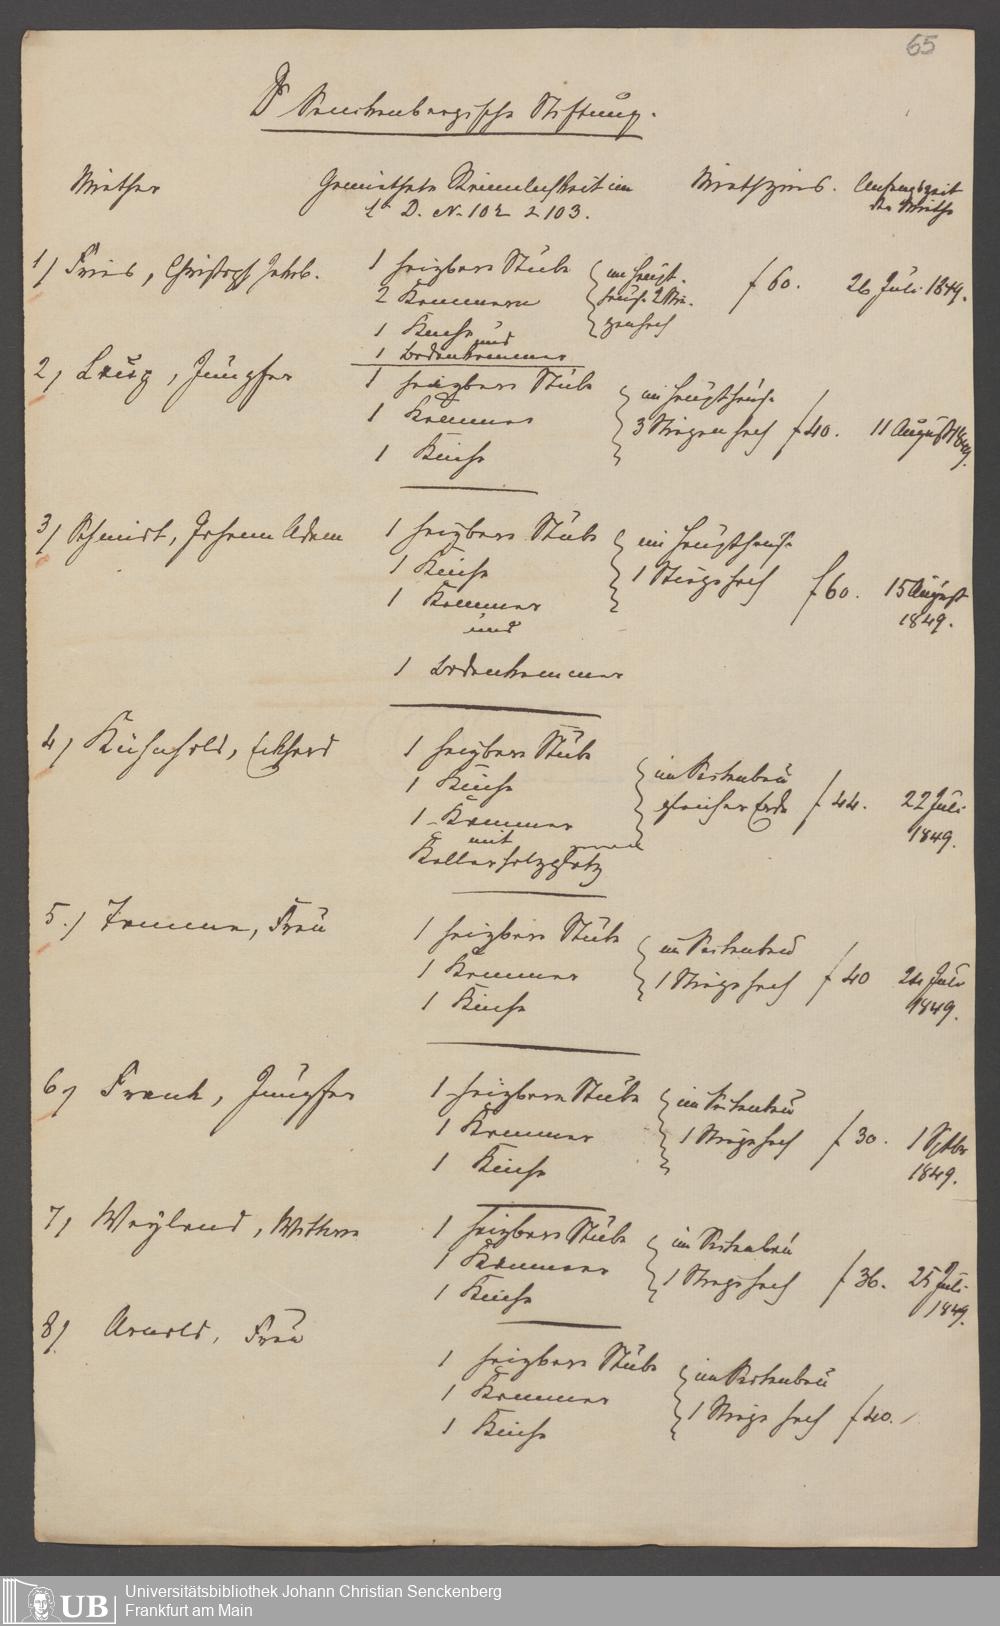 65
Dr Senckenbergische Stiftung.
Miether
Gemiethete Räumlichkeit im
Lt D. No 102 & 103.
Miethzins.
Anfangszeit
der Miethe
1) Fries, Christoph Jakob.
1 heizbare Stube
2 Kammern
1 Küche und
1 Bodenkammer
im Haupt-
hause 2 Stie-
gen hoch
f 60.
26 Juli 1849.
2) Jungfer
1 heizbare Stube
1 Kammer
1 Küche
im Haupthause
3 Stiegen hoch
f 40.
11 August 1849.
3) Schmidt, Johann Adam
1 heizbare Stube
1 Küche
1 Kammer
und
1 Bodenkammer
im Haupthause
1 Stiege hoch
f 60.
15 August
1849.
4) Kühnhold, Eckhard
1 heizbare Stube
1 Küche
1 Kammer
mit
Kellerholzplatz
im Seitenbau
gleicher Erde
f 44.
22 Juli
1849.
5.) Frau
1 heizbare Stube
1 Kammer
1 Küche
im Seitenbau
1 Stiege hoch
f 40
24 Juli
1849.
6) Frank, Jungfer
1 heizbare Stube
1 Kammer
1 Küche
im Seitenbau
1 Stiege hoch
f 30.
1 Septbr
1849.
7) Weyland, Wittwe
1 heizbare Stube
1 Kammer
1 Küche
im Seitenbau
1 Stiege hoch
f 36.
25 Juli
1849.
8) Arnold, Frau
1 heizbare Stube
1 Kammer
1 Küche
im Seitenbau
1 Stiege hoch
f 40.
UB
Universitätsbibliothek Johann Christian Senckenberg
Frankfurt am Main